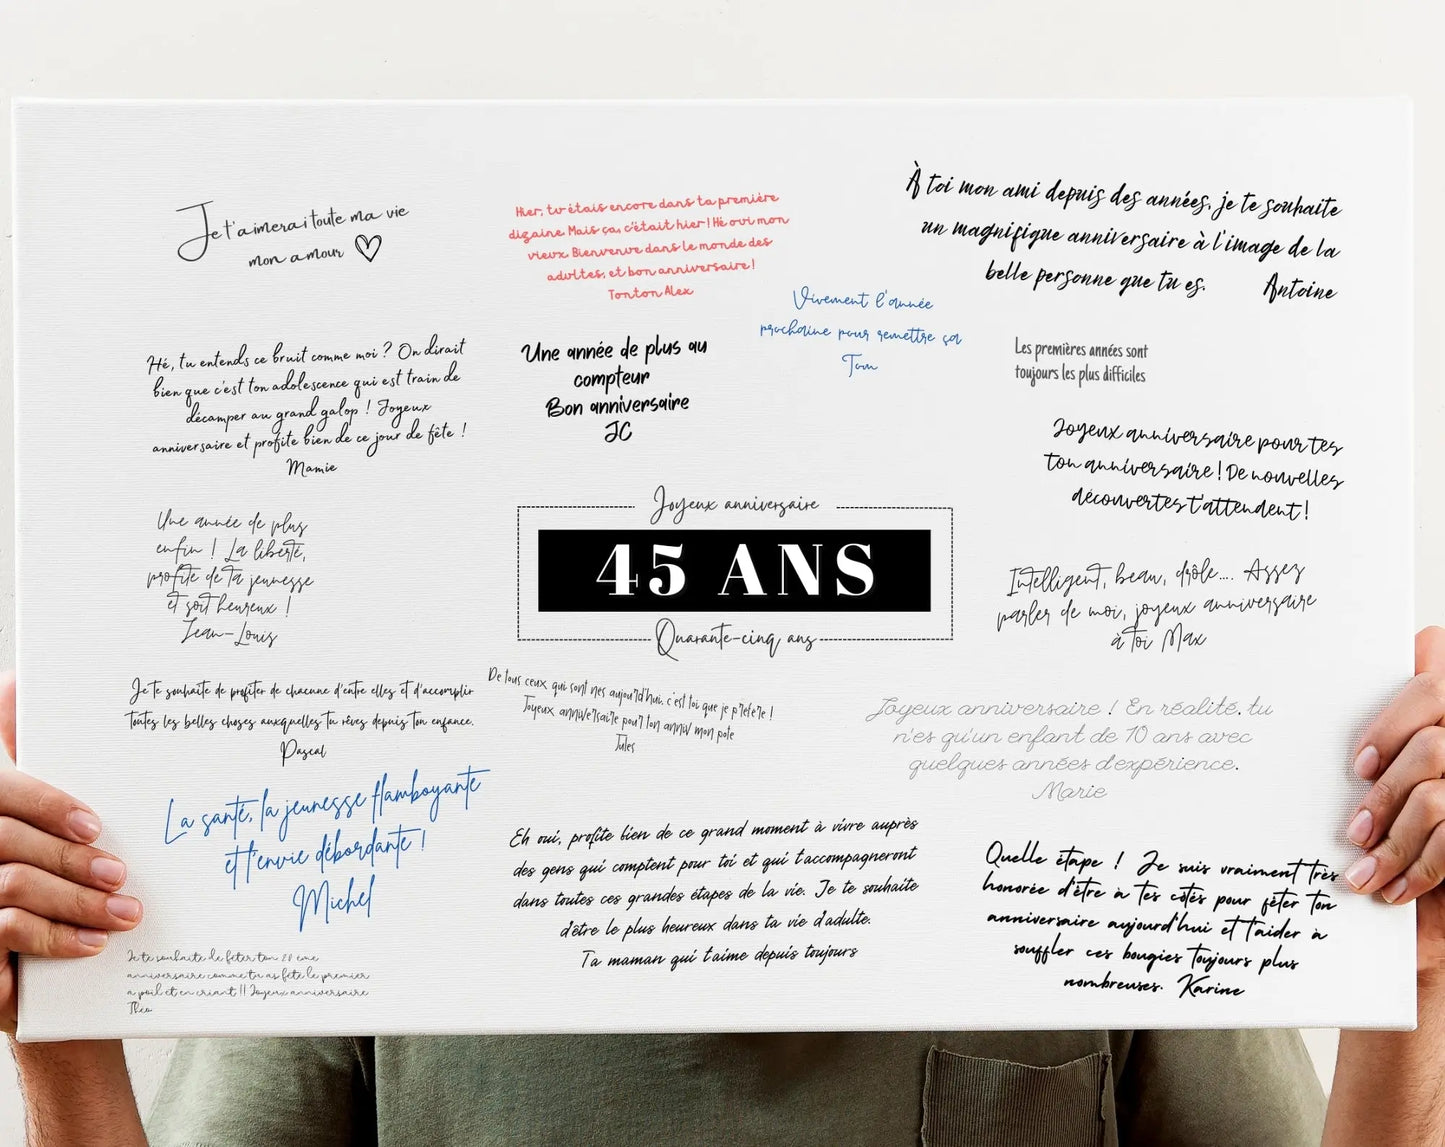 Je t'aimerai toute ma vie
mon amour
Hier, tu étais encore dans ta première
dizaine. Mais ça, c'était hier ! Hé oui mon
vieux. Bienvenue dans le monde des
adultes, et bon anniversaire !
Tonton Alex
À toi mon ami depuis des années, je te souhaite
un magnifique anniversaire à l'image de la
belle personne que tu es. Antoine
Vivement l'année
prochaine pour remettre ça
Tom
Hé, tu entends ce bruit comme moi ? On dirait
bien que c'est ton adolescence qui est train de
décamper au grand galop ! Joyeux
anniversaire et profite bien de ce jour de fête !
Mamie
Une année de plus au
compteur
Bon anniversaire
JC
Les premières années sont
toujours les plus difficiles
Joyeux anniversaire pour tes
ton anniversaire ! De nouvelles
découvertes t'attendent !
Une année de plus
enfin ! La liberté,
profite de ta jeunesse
et soit heureux !
Jean-Louis
Joyeux anniversaire
45 ANS
Quarante-cinq ans
Intelligent, beau, drôle.... Assez
parler de moi, joyeux anniversaire
à toi Max
Je te souhaite de profiter de chacune d'entre elles et d'accomplir
toutes les belles choses auxquelles tu rêves depuis ton enfance.
Pascal
De tous ceux qui sont nés aujourd'hui, c'est toi que je préfère !
Joyeux anniversaire pour ton anniv mon pote
Jules
Joyeux anniversaire ! En réalité, tu
n'es qu'un enfant de 10 ans avec
quelques années d'expérience.
Marie
La santé, la jeunesse flamboyante
et l'envie débordante !
Michel
Eh oui, profite bien de ce grand moment à vivre auprès
des gens qui comptent pour toi et qui t'accompagneront
dans toutes ces grandes étapes de la vie. Je te souhaite
d'être le plus heureux dans ta vie d'adulte.
Ta maman qui t'aime depuis toujours
Quelle étape ! Je suis vraiment très
honorée d'être à tes côtés pour fêter ton
anniversaire aujourd'hui et t'aider à
souffler ces bougies toujours plus
nombreuses. Karine
Je te souhaite de fêter ton 20 ème
anniversaire comme tu as fêté le premier
a poil et en criant !! Joyeux anniversaire
Théo